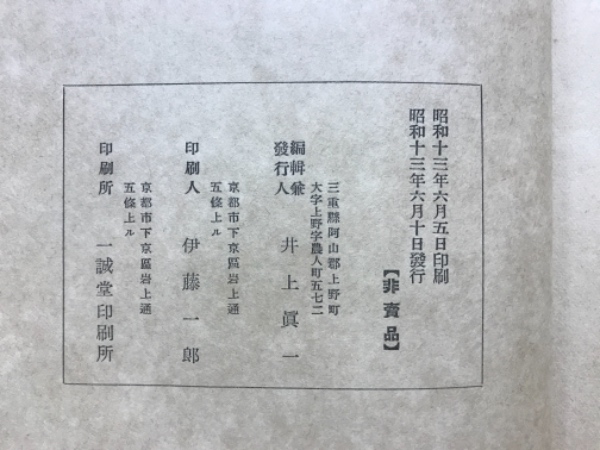 昭和十三年六月五日印刷
昭和十三年六月十日發行
【非賣品】
三重縣阿山郡上野町
大字上野字農人町五七二
編輯兼
發行人
井上眞一
京都市下京區岩上通
五條上ル
印刷人
伊藤一郎
京都市下京區岩上通
五條上ル
印刷所
一誠堂印刷所